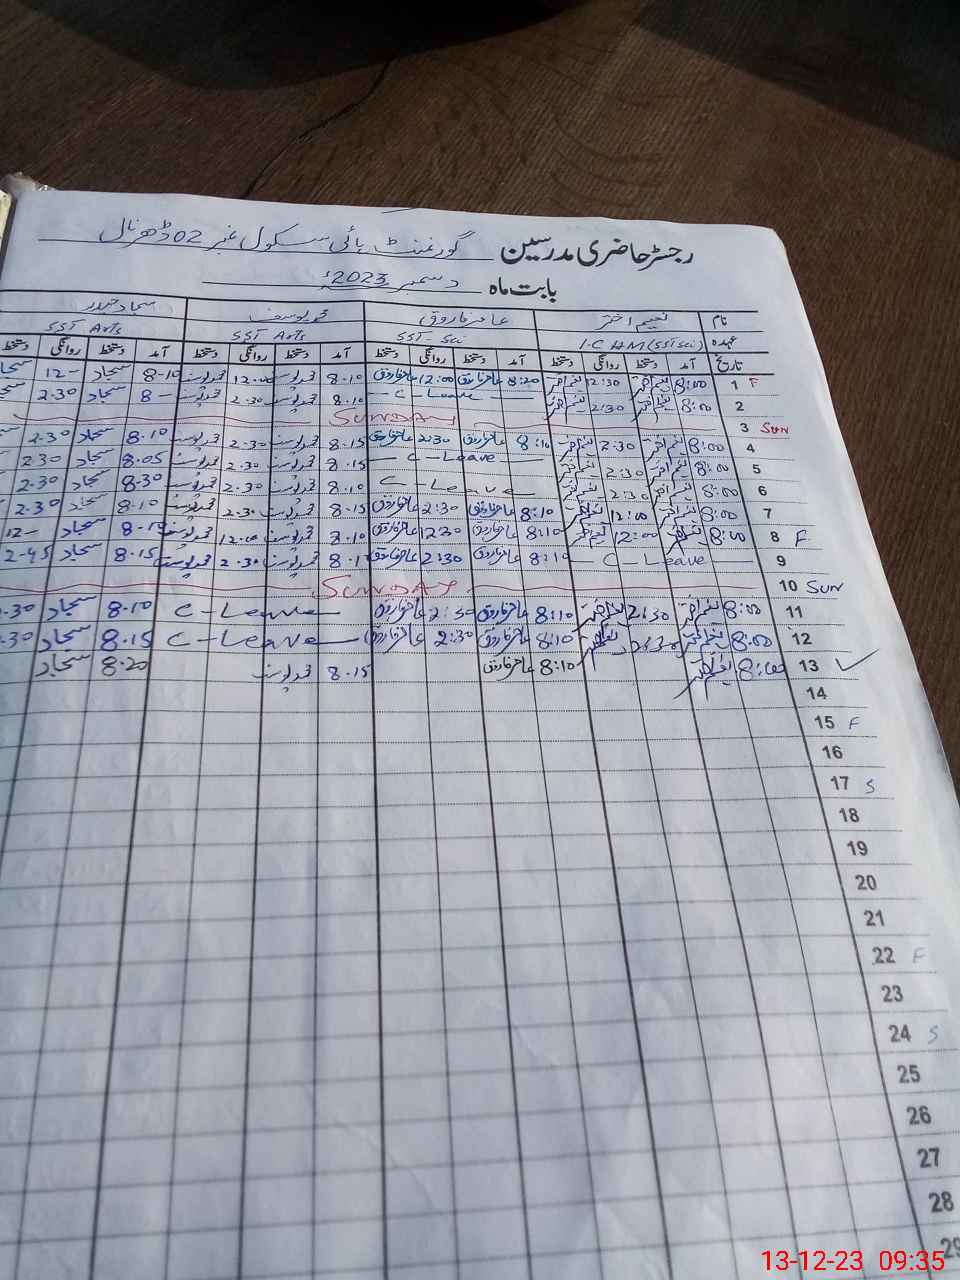 رجسٹر حاضری مدرسین گورنمنٹ ہائی سکول نمبر 02 ڈھرنال
بابت ماہ دسمبر 2023ء
نام نعیم اختر عامر فاروق محمد یوسف سجاد حیدر
عہدہ I-C HM (SST Sci) SST-Sci SST Arts SST Arts
تاریخ آمد دستخط روانگی دستخط آمد دستخط روانگی دستخط آمد دستخط روانگی دستخط آمد دستخط روانگی دستخط
1 F 8:00 نعیم اختر 12:30 نعیم اختر 8:20 عامر فاروق 12:00 عامر فاروق 8.10 محمد یوسف 12.00 محمد یوسف 8-10 سجاد 12-
2 8:00 نعیم اختر 2:30 نعیم اختر C-Leave 8.10 محمد یوسف 2.30 محمد یوسف 8- سجاد 2.30
3 SUN SUNDAY
4 8:00 نعیم اختر 2:30 نعیم اختر 8:10 عامر فاروق 2:30 عامر فاروق 8.15 محمد یوسف 2.30 محمد یوسف 8.10 سجاد 2.30
5 8:00 نعیم اختر 2:30 نعیم اختر C-Leave 8.15 محمد یوسف 2.30 محمد یوسف 8.05 سجاد 230
6 8:00 نعیم اختر 2:30 نعیم اختر C-Leave 8.10 محمد یوسف 2.30 محمد یوسف 8-30 سجاد 2.30
7 8:00 نعیم اختر 12:00 نعیم اختر 8:10 عامر فاروق 2:30 عامر فاروق 8.15 محمد یوسف 2.30 محمد یوسف 8.10 سجاد 2.30
8 F 8:00 نعیم اختر 12:00 نعیم اختر 8:10 عامر فاروق 12:30 عامر فاروق 8.10 محمد یوسف 12.00 محمد یوسف 8.15 سجاد 12-
9 C-Leave 8:10 عامر فاروق 2:30 عامر فاروق محمد یوسف 2.30 محمد یوسف 8.15 سجاد 2-45
10 SUN SUNDAY
11 8:00 نعیم اختر 2:30 نعیم اختر 8:10 عامر فاروق 2:30 عامر فاروق C-Leave 8.10 سجاد
12 8:00 نعیم اختر 2:30 نعیم اختر 8:10 عامر فاروق 2:30 عامر فاروق C-Leave 8.15 سجاد
13 8:00 نعیم اختر 8:10 عامر فاروق 8.15 محمد یوسف 8.20 سجاد
14
15 F
16
17 S
18
19
20
21
22 F
23
24 S
25
26
27
28
29
13-12-23 09:35